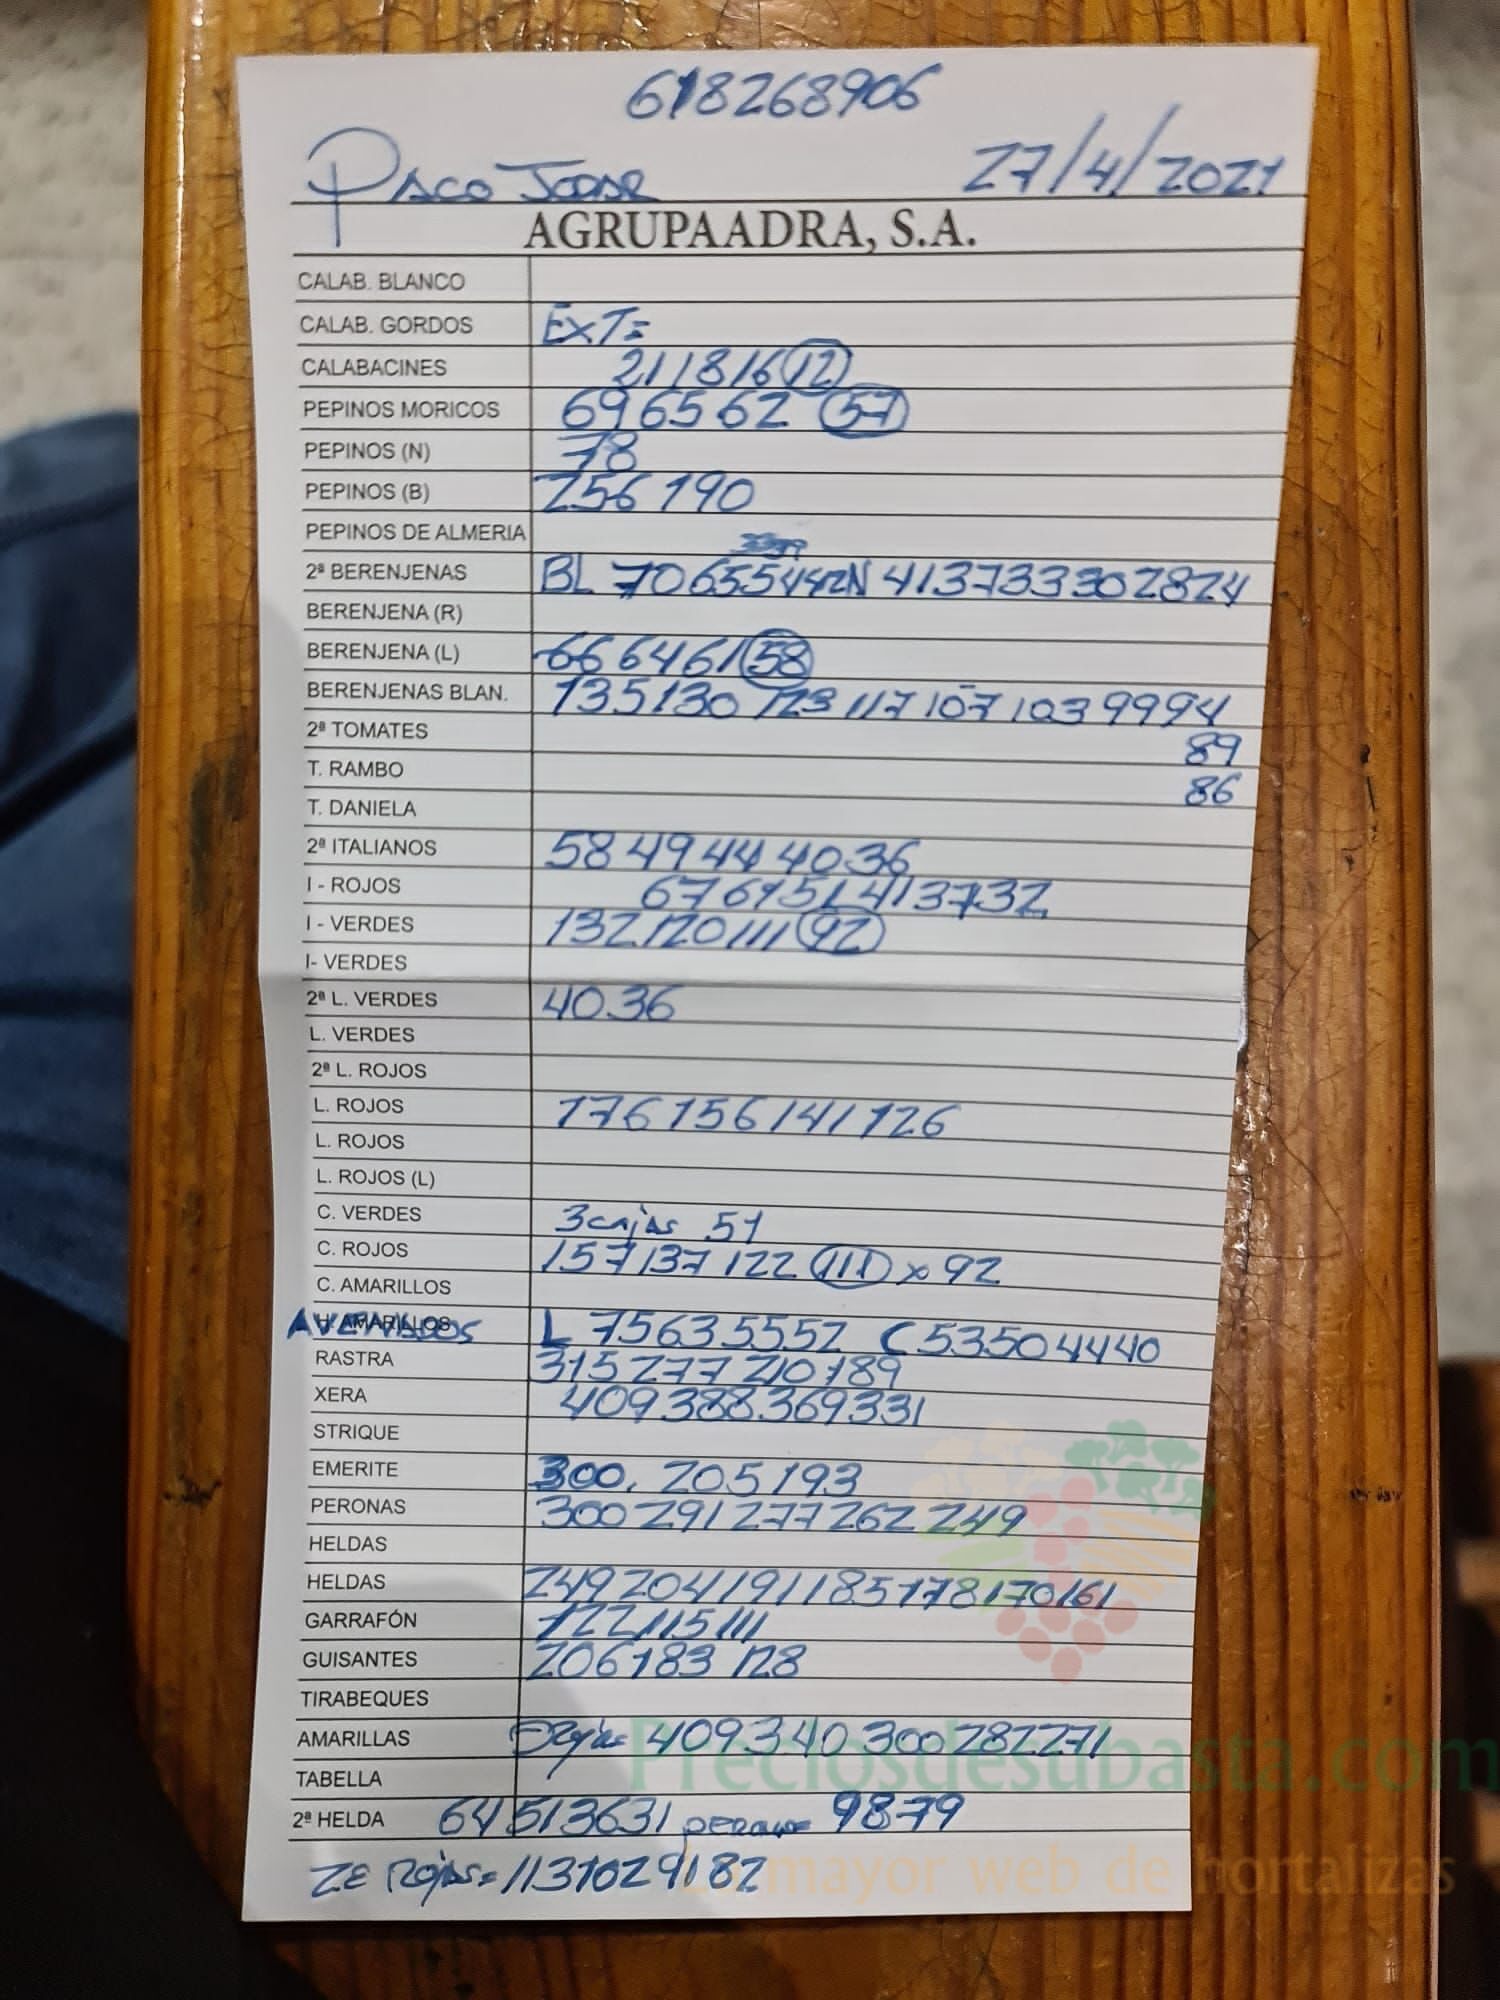 618268906
Paco Jodar 27/4/2021
AGRUPAADRA, S.A.
CALAB. BLANCO
CALAB. GORDOS EXT=
CALABACINES 21 18 16 12
PEPINOS MORICOS 69 65 62 57
PEPINOS (N) 78
PEPINOS (B) 256 190
PEPINOS DE ALMERIA
33 29
2ª BERENJENAS BL 70 65 54 42 N 41 37 33 30 28 24
BERENJENA (R)
BERENJENA (L) 66 64 61 58
BERENJENAS BLAN. 135 130 123 117 107 103 99 94
2ª TOMATES 89
T. RAMBO 86
T. DANIELA
2ª ITALIANOS 58 49 44 40 36
I - ROJOS 67 61 51 41 37 32
I - VERDES 132 120 111 92
I- VERDES
2ª L. VERDES 40 36
L. VERDES
2ª L. ROJOS
L. ROJOS 176 156 141 126
L. ROJOS
L. ROJOS (L)
C. VERDES 3 cajas 51
C. ROJOS 157 137 122 111 x 92
C. AMARILLOS
H. AMARILLOS L 75 63 55 52 C 53 50 44 40
RASTRA 315 277 210 189
XERA 409 388 369 331
STRIQUE
EMERITE 300. 205 193
PERONAS 300 291 277 262 249
HELDAS
HELDAS 249 204 191 185 178 170 161
GARRAFÓN 122 115 111
GUISANTES 206 183 128
TIRABEQUES
AMARILLAS 409 340 300 282 271
TABELLA
2ª HELDA 64 51 36 31 perona= 98 79
2E Rojas= 113 102 91 82
Preciosdesubasta.com
La mayor web de hortalizas